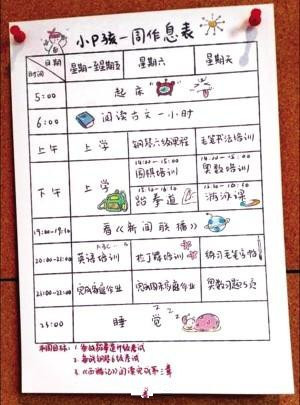 小P孩一周作息表
日期
时间
星期一至星期五 星期六 星期天
5:00 起床
6:00 阅读古文一小时
上午 上学 钢琴六级课程 毛笔书法培训
下午 上学
14:00-15:00 14:00-15:00
围棋培训 奥数培训
跆拳道 游泳课
19:00-19:30 看《新闻联播》
20:00-21:00 英语培训 拉丁舞培训 练习毛笔字帖
21:00-22:00 完成家庭作业 完成周末家庭作业 奥数习题5页
23:00 睡觉
本周目标: 1.
2.
3.《西游记》阅读完成第三章